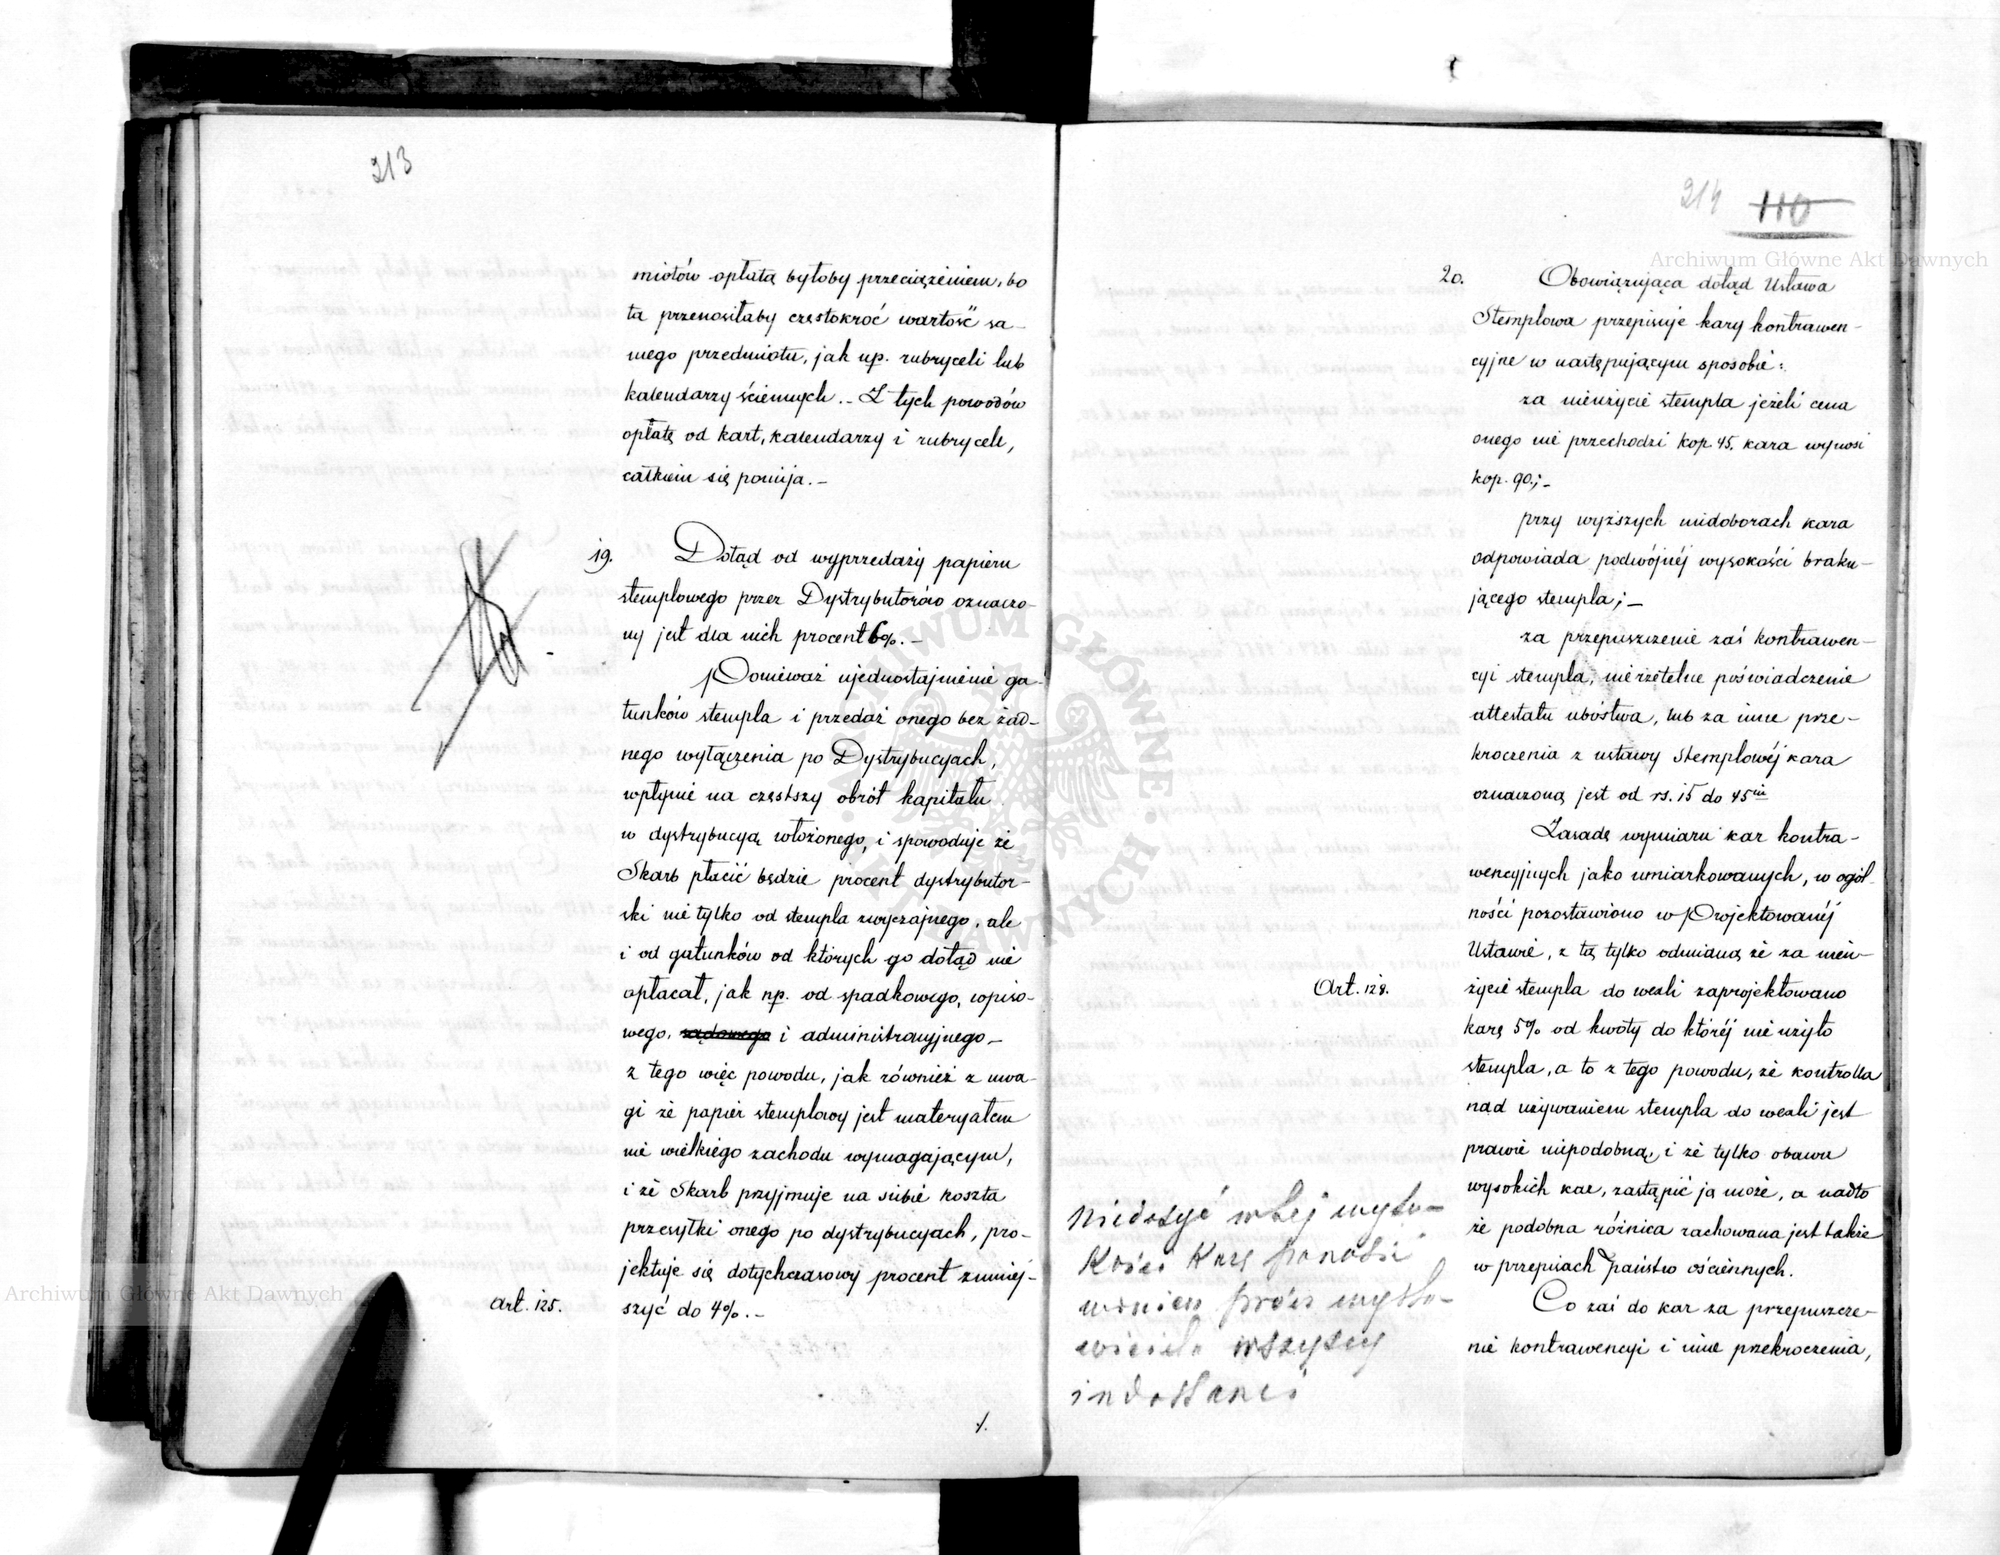 213
miotów opłatą byłoby przeciążeniem, bo
ta przenosiłaby częstokroć wartość sa-
mego przedmiotu, jak np. rubryceli lub
kalendarzy ściennych.- Z tych powodów
opłatę od kart, kalendarzy i rubryceli,
całkiem się pomija.-
19. Dotąd od wyprzedaży papieru
stemplowego przez Dystrybutorów oznaczo-
ny jest dla nich procent 6%.-
Ponieważ ujednostajnienie ga-
tunków stempla i przedaż onego bez żad-
nego wyłączenia po Dystrybucyach,
wpłynie na częstszy obrót kapitału
w dystrybucyą włożonego, i spowoduje że
Skarb płacić będzie procent dystrybutor-
ski nie tylko od stempla zwyczajnego, ale
i od gatunków od których go dotąd nie
opłacał, jak np. od spadkowego, wpiso-
wego, sądowego i administracyjnego,-
z tego więc powodu, jak również z uwa-
gi że papier stemplowy jest materyałem
nie wielkiego zachodu wymagającym,
i że Skarb przyjmuje na siebie koszta
przesyłki onego po dystrybucyach, pro-
jektuje się dotychczasowy procent zmniej-
Art. 125. szyć do 4%.-
214 110
20. Obowiązująca dotąd Ustawa
Stemplowa przepisuje kary kontrawen-
cyjne w następującym sposobie:
za nieużycie stempla jeżeli cena
onego nie przechodzi kop. 45. kara wynosi
kop. 90.;-
przy wyższych niedoborach kara
odpowiada podwójnéj wysokości braku-
jącego stempla;-
za przepuszczenie zaś kontrawen-
cyi stempla, nierzetelne poświadczenie
attestatu ubóstwa, lub za inne prze-
kroczenia z ustawy Stemplowéj kara
oznaczoną jest od rs. 15 do 45iu
Zasadę wymiaru kar kontra-
wencyjnych jako umiarkowanych, w ogól-
ności pozostawiono w Projektowanéj
Ustawie, z tą tylko odmianą że za nieu-
Art. 128. życie stempla do wexli zaprojektowano
karę 5% od kwoty do któréj nie użyto
stempla, a to z tego powodu, że kontrolla
nad używaniem stempla do wexli jest
prawie niepodobną, i że tylko obawa
wysokich kar, zastąpić ją może, a nadto
że podobna różnica zachowana jest także
w przepisach państw ościennych.
Co zaś do kar za przepuszcze-
nie kontrawencyi i inne przekroczenia,
Niedosyć w tej wyso-
kości karę ponosić
winien prócz wysta-
wiciela wszyscy
indossanci
Archiwum Główne Akt Dawnych
Archiwum Główne Akt Dawnych
ARCHIWUM GŁÓWNE AKT DAWNYCH